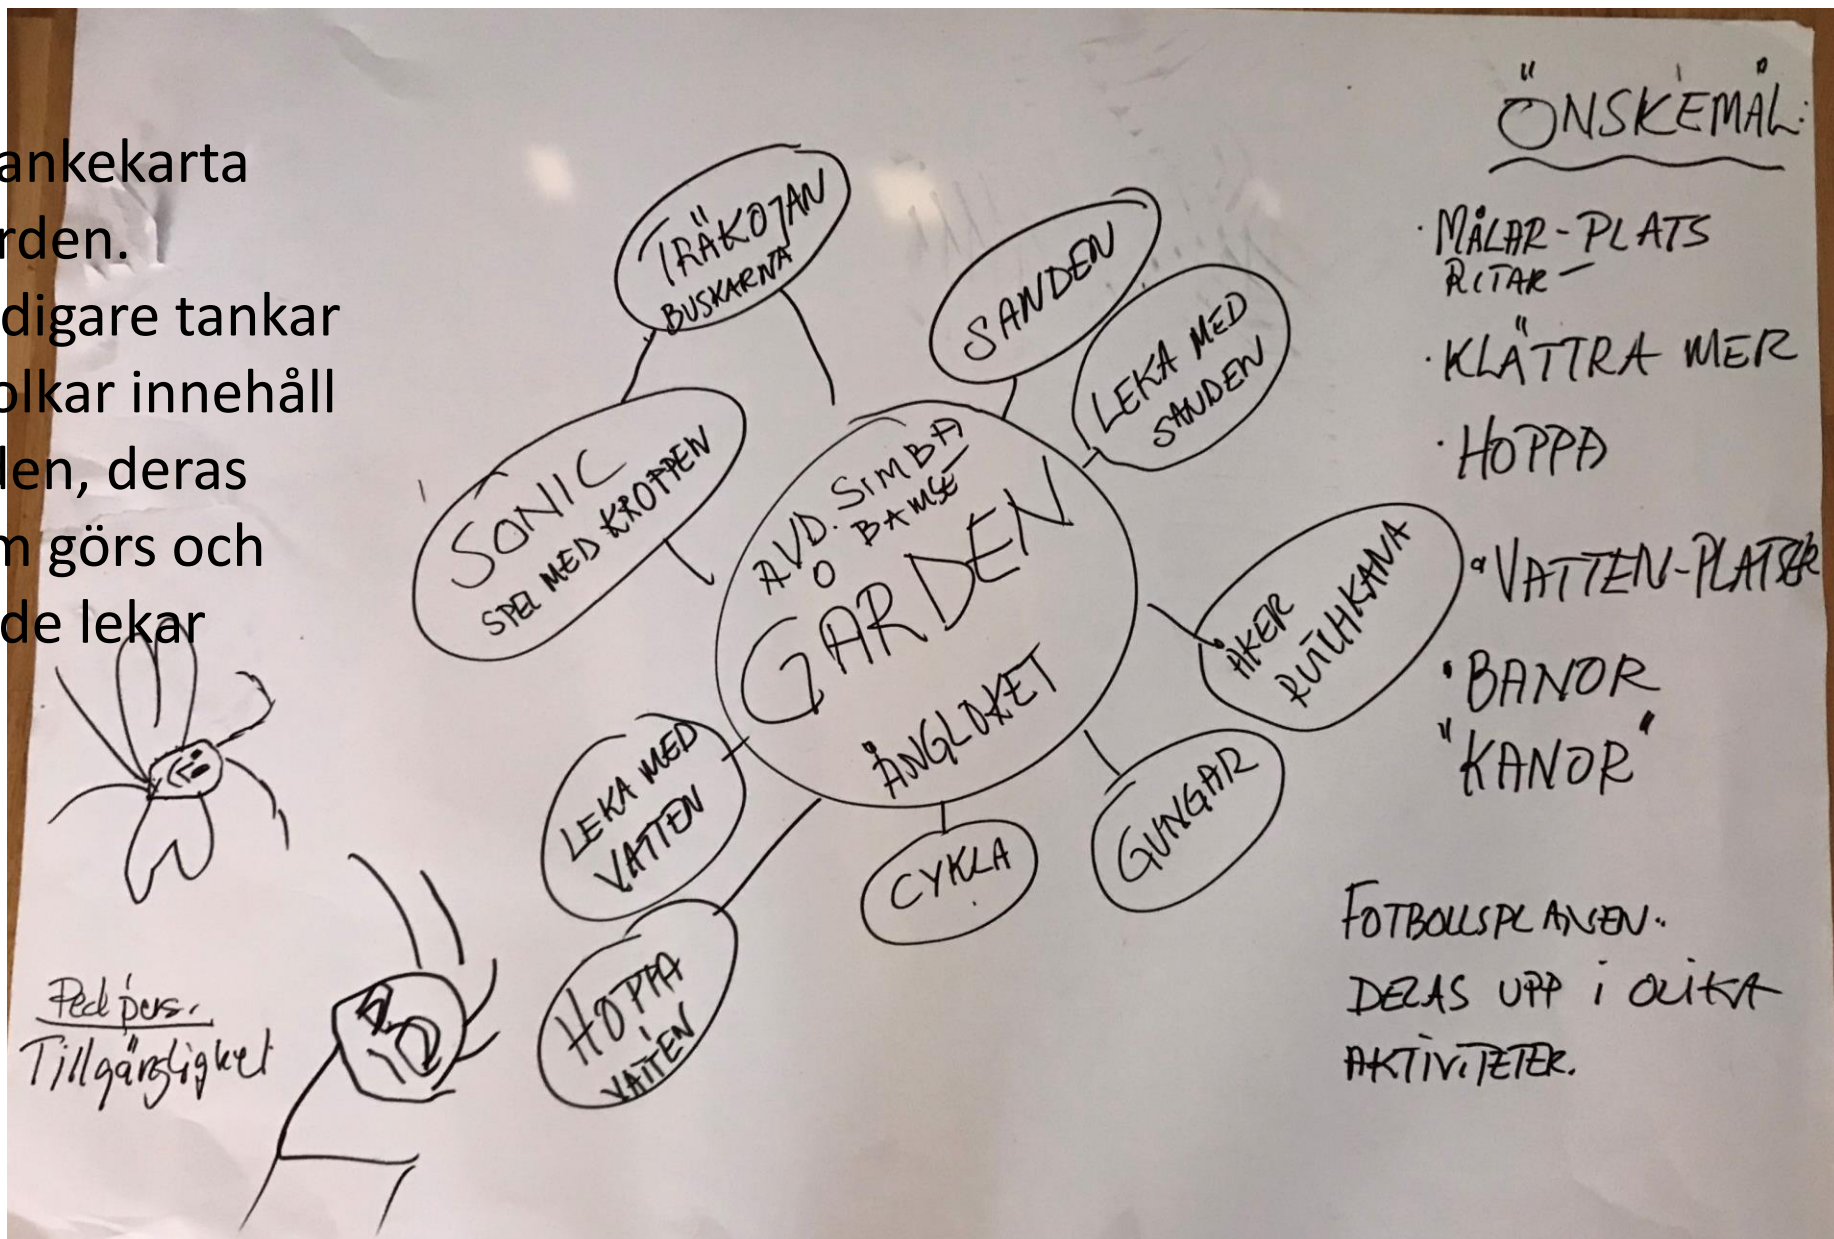 ankekarta
rden.
digare tankar
olkar innehåll
den, deras
m görs och
de lekar
TRÄKOJAN
BUSKARNA
SANDEN
LEKA MED
SANDEN
SONIC
SPEL MED KROPPEN
AVD. SIMBA
BAMSE
GÅRDEN
ÅNGLOKET
ÅKER
RUTCHKANA
GUNGAR
CYKLA
LEKA MED
VATTEN
HOPPA
I
VATTEN
Ped pers.
Tillgänglighet
ÖNSKEMÅL:
· MÅLAR-PLATS
RITAR-
· KLÄTTRA MER
· HOPPA
· VATTEN-PLATSER
· BANOR
"KANOR"
FOTBOLLSPLANEN..
DELAS UPP i OLIKA
AKTIViTETER.